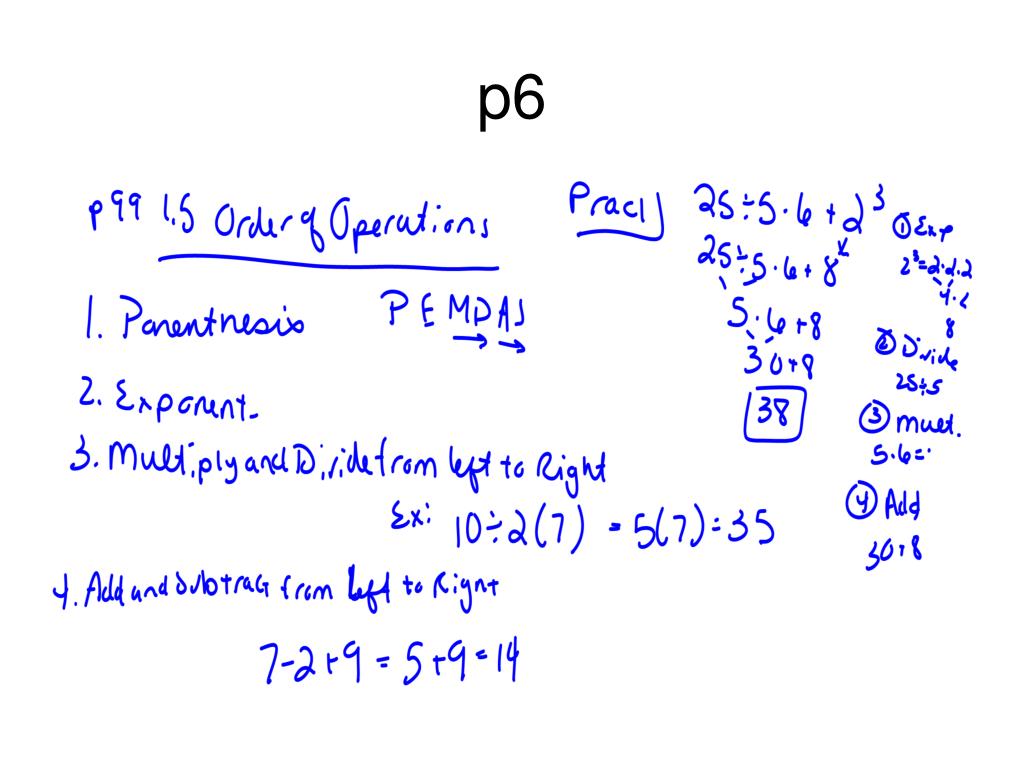 p6
p99 1.5 Order of Operations
1. Parenthesis
P E M D A S
2. Exponent
3. Multiply and Divide from left to Right
Ex: 10÷2(7) = 5(7) = 35
4. Add and Subtract from left to Right
7-2+9 = 5+9 = 14
25÷5·6+2³
25÷5·6+8
5·6+8
30+8
38
① Exp
2³=2·2·2
4·2
8
② Divide
25÷5
③ Mult.
5·6=
④ Add
30+8